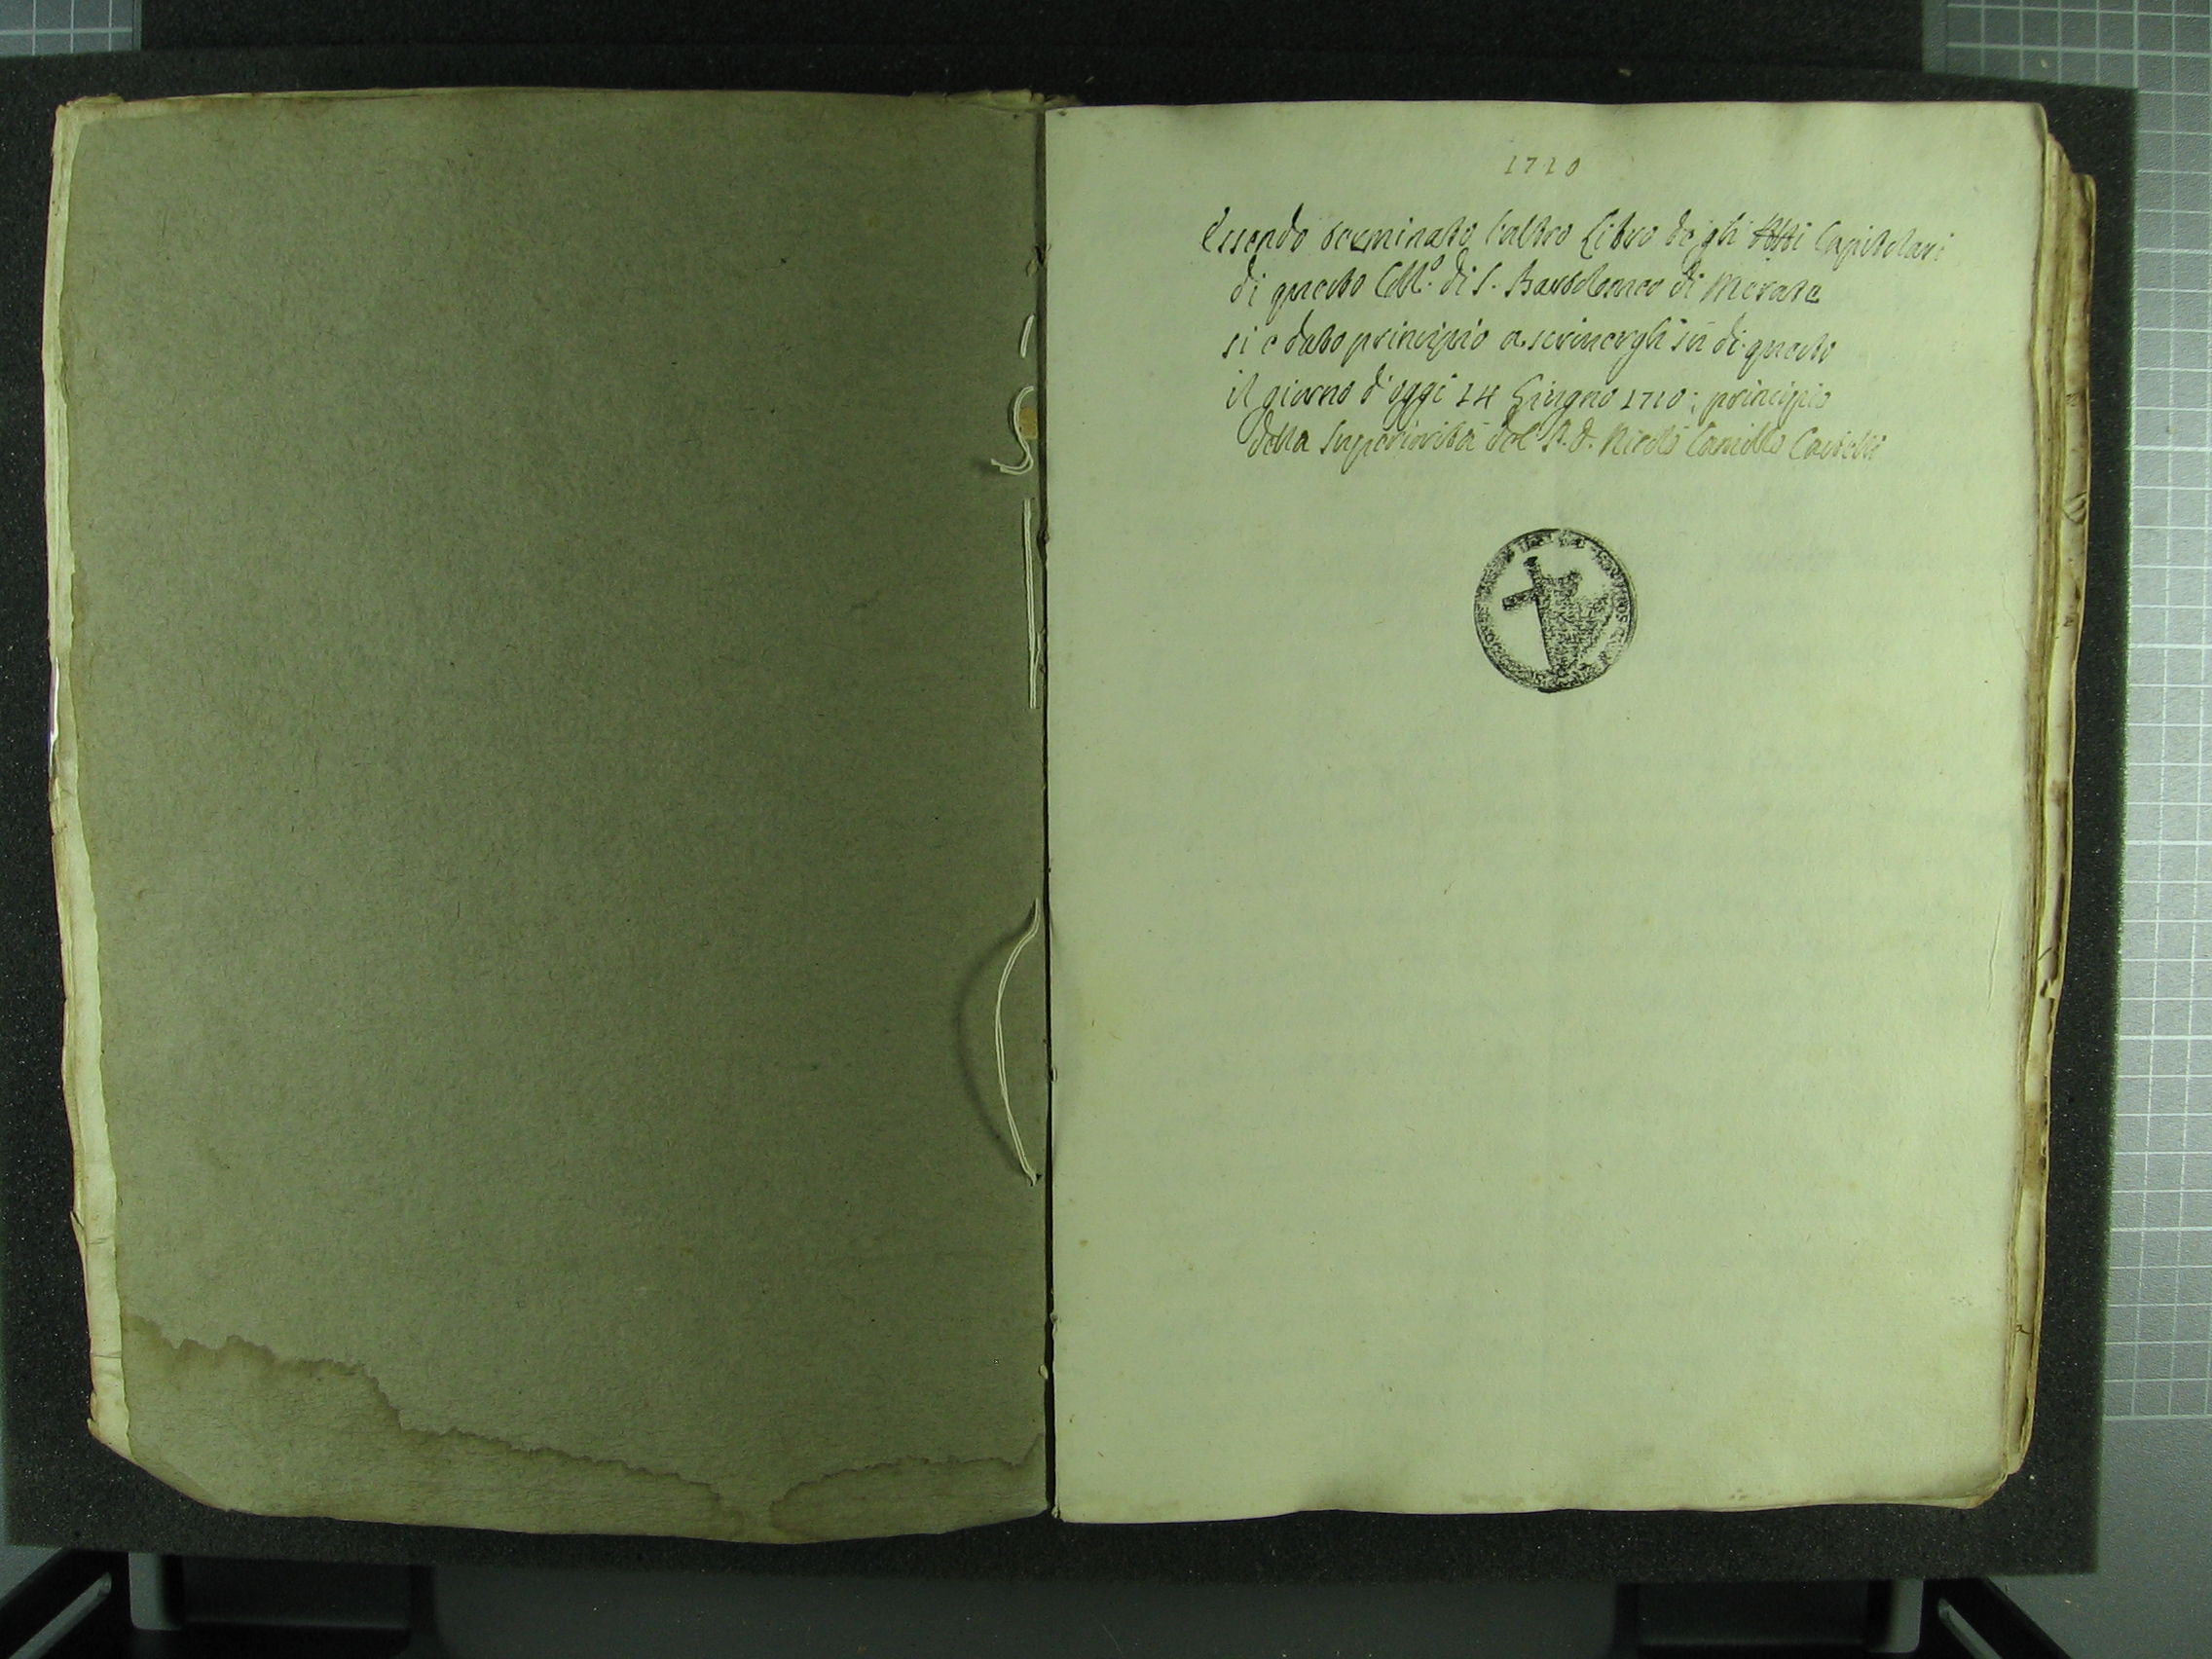 1710
Essendo terminato l'altro Libro de gli Atti Capitolari
di questo Coll.o di S. Bartolomeo di Merate
si e dato principio a scrivergli sù di questo
il giorno d'oggi 14 Giugno 1710; principio
della Superiorità del P. D. Nicolò Camillo Castelli